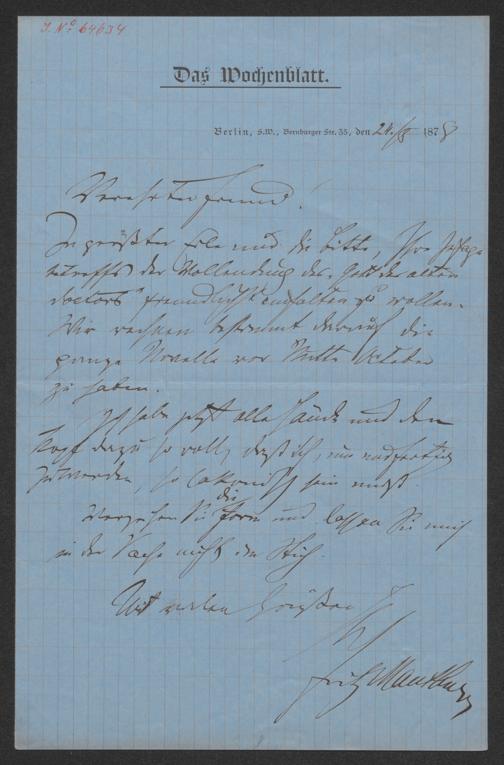 J. No 64634
Das Wochenblatt.
Berlin, S.W., Bernburger Str. 35, den 21/8 1878
Verehrter Freund!
In größter Eile nur die Bitte, Ihre Zusage
betreffs der Vollendung des „Gott des alten
Doctors" freundlichst einhalten zu wollen.
Wir rechnen bestimmt darauf die
ganze Novelle vor Mitte October
zu haben.
Ich habe jetzt alle Hände und den
Kopf dazu so voll, daß ich, um nur fertig
zu werden, so lakonisch sein muß.
Verzeihen Sie die Form und lassen Sie mich
in der Sache nicht im Stich.
Mit vielen Grüßen
Ihr
Fritz Mauthner